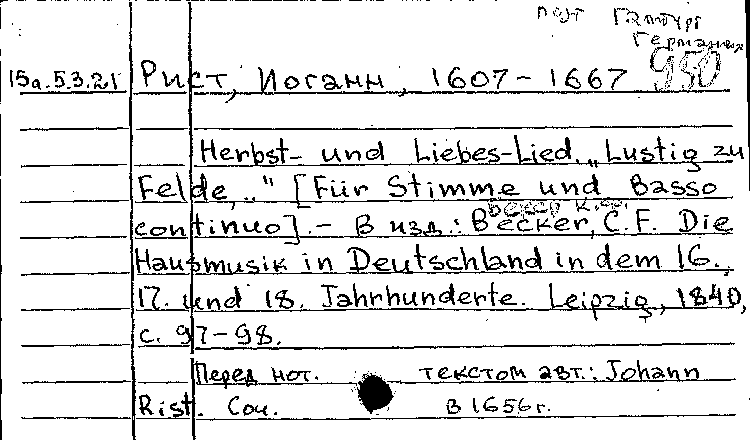 поэт Гамбург
Германия
950
15а.5.3.21 Рист, Иоганн, 1607-1667
Herbst- und Liebes-Lied. „Lustig zu
Felde,.." [Für Stimme und Basso
continuo]. - В изд.: Becker, C.F. Die
Hausmusik in Deutschland in dem 16.,
17. und 18. Jahrhunderte. Leipzig, 1840,
с. 97-98.
Перед нот. текстом авт.: Johann
Rist. Соч. в 1656 г.